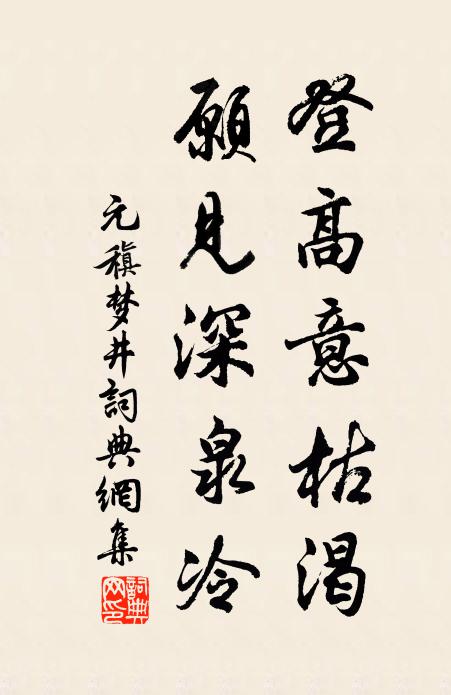 登高意枯渴
願見深泉冷
元稹梦井詞典網集
詞典網印